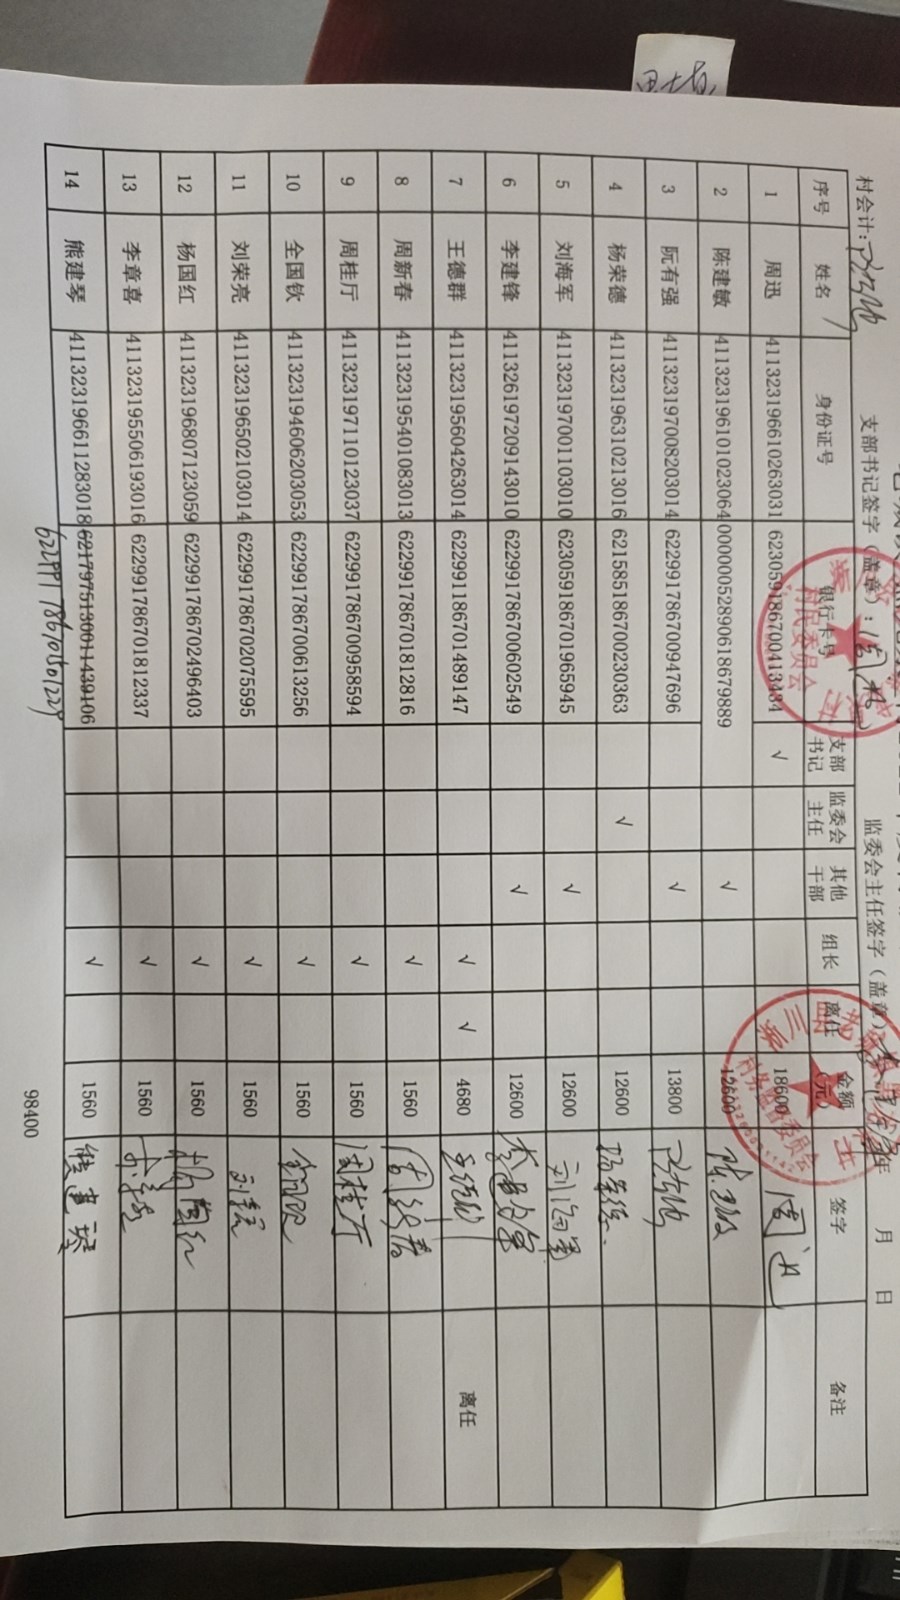 村会计: 支部书记签字（盖章）: 监委会主任签字（盖章） 年 月 日
序号 姓名 身份证号 银行卡号 支部书记 监委会主任 其他干部 组长 离任 金额（元） 签字 备注
1 周迅 411323196610263031 623059186700413434 √ 18600 周迅
2 陈建敏 411323196101023064 00000052890618679889 √ 12600
3 阮有强 411323197008203014 622991786700947696 √ 13800
4 杨荣德 411323196310213016 621585186700230363 √ 12600
5 刘海军 411323197001103010 623059186701965945 √ 12600 刘海军
6 李建锋 411326197209143010 622991786700602549 √ 12600
7 王德群 411323195604263014 622991186701489147 √ √ 4680 离任
8 周新春 411323195401083013 622991786701812816 √ 1560 周新春
9 周桂厅 411323197110123037 622991786700958594 √ 1560 周桂厅
10 全国钦 411323194606203053 622991786700613256 √ 1560
11 刘荣亮 411323196502103014 622991786702075595 √ 1560
12 杨国红 411323196807123059 622991786702496403 √ 1560 杨国红
13 李章喜 411323195506193016 622991786701812337 √ 1560
14 熊建琴 411323196611283018 6217975130011439106 √ 1560 熊建琴
98400